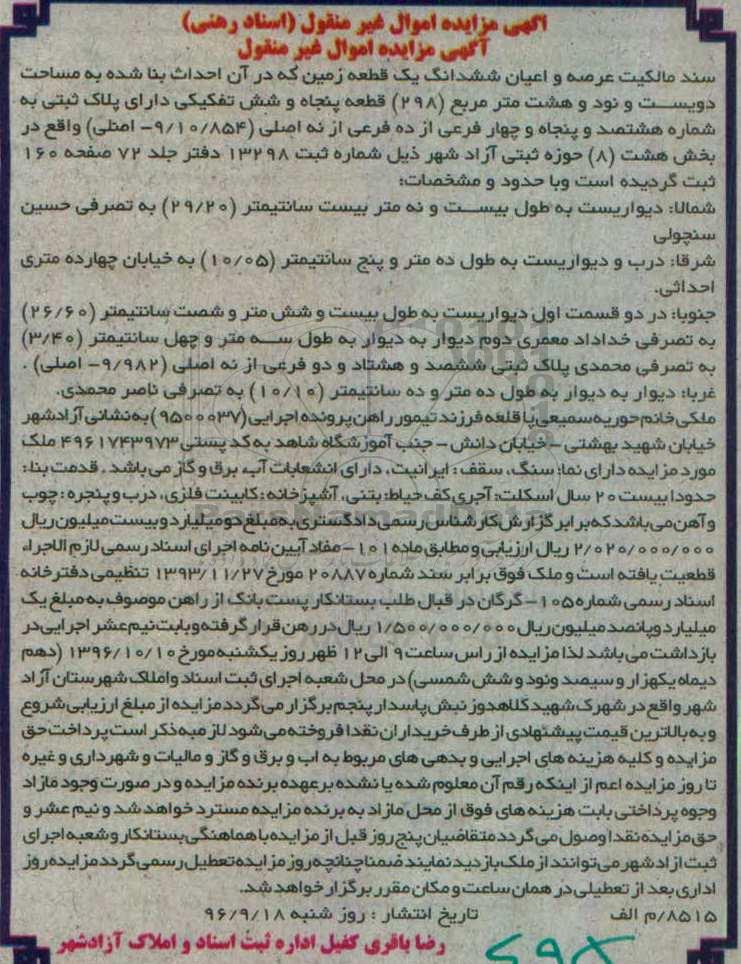 اگهی مزایده اموال غیر منقول (اسناد رهنی)
آگهی مزایده اموال غیر منقول
سند مالکیت عرصه و اعیان ششدانگ یک قطعه زمین که در آن احداث بنا شده به مساحت
دویست و نود و هشت متر مربع (۲۹۸) قطعه پنجاه و شش تفکیکی دارای پلاک ثبتی به
شماره هشتصد و پنجاه و چهار فرعی از ده فرعی از نه اصلی (۹/۱۰/۸۵۴- اصلی) واقع در
بخش هشت (۸) حوزه ثبتی آزاد شهر ذیل شماره ثبت ۱۳۲۹۸ دفتر جلد ۷۲ صفحه ۱۶۰
ثبت گردیده است وبا حدود و مشخصات:
شمالا: دیواریست به طول بیست و نه متر بیست سانتیمتر (۲۹/۲۰) به تصرفی حسین
سنچولی
شرقا: درب و دیواریست به طول ده متر و پنج سانتیمتر (۱۰/۰۵) به خیابان چهارده متری
احداثی.
جنوبا: در دو قسمت اول دیواریست به طول بیست و شش متر و شصت سانتیمتر (۲۶/۶۰)
به تصرفی خداداد معمری دوم دیوار به دیوار به طول سه متر و چهل سانتیمتر (۳/۴۰)
به تصرفی محمدی پلاک ثبتی ششصد و هشتاد و دو فرعی از نه اصلی (۹/۹۸۲- اصلی) .
غربا: دیوار به دیوار به طول ده متر و ده سانتیمتر (۱۰/۱۰) به تصرفی ناصر محمدی.
ملکی خانم حوریه سمیعی پا قلعه فرزند تیمور راهن پرونده اجرایی (۹۵۰۰۰۳۷) به نشانی آزادشهر
خیابان شهید بهشتی - خیابان دانش - جنب آموزشگاه شاهد به کد پستی ۴۹۶۱۷۴۳۹۷۳ ملک
مورد مزایده دارای نما: سنگ، سقف : ایرانیت ، دارای انشعابات آب، برق و گاز می باشد . قدمت بنا:
حدودا بیست ۲۰ سال اسکلت: آجری کف حیاط: بتنی، آشپزخانه : کابینت فلزی، درب و پنجره : چوب
و آهن می باشد که برابر گزارش کارشناس رسمی دادگستری به مبلغ دو میلیارد و بیست میلیون ریال
۲/۰۲۰/۰۰۰/۰۰۰ ریال ارزیابی و مطابق ماده ۱۰۱- مفاد آیین نامه اجرای اسناد رسمی لازم الاجراء
قطعیت یافته است و ملک فوق برابر سند شماره ۲۰۸۸۷ مورخ ۱۳۹۳/۱۱/۲۷ تنظیمی دفترخانه
اسناد رسمی شماره ۱۰۵- گرگان در قبال طلب بستانکار پست بانک از راهن موصوف به مبلغ یک
میلیارد و پانصد میلیون ریال ۱/۵۰۰/۰۰۰/۰۰۰ ریال در رهن قرار گرفته و بابت نیم عشر اجرایی در
بازداشت می باشد لذا مزایده از راس ساعت ۹ الی ۱۲ ظهر روز یکشنبه مورخ ۱۳۹۶/۱۰/۱۰ (دهم
دیماه یکهزار و سیصد و نود و شش شمسی) در محل شعبه اجرای ثبت اسناد و املاک شهرستان آزاد
شهر واقع در شهرک شهید کلاهدوز نبش پاسدار پنجم برگزار می گردد مزایده از مبلغ ارزیابی شروع
و به بالاترین قیمت پیشنهادی از طرف خریداران نقدا فروخته می شود لازم به ذکر است پرداخت حق
مزایده و کلیه هزینه های اجرایی و بدهی های مربوط به اب و برق و گاز و مالیات و شهرداری و غیره
تا روز مزایده اعم از اینکه رقم آن معلوم شده یا نشده بر عهده برنده مزایده و در صورت وجود مازاد
وجوه پرداختی بابت هزینه های فوق از محل مازاد به برنده مزایده مسترد خواهد شد و نیم عشر و
حق مزایده نقدا وصول می گردد متقاضیان پنج روز قبل از مزایده با هماهنگی بستانکار و شعبه اجرای
ثبت ازادشهر می توانند از ملک بازدید نمایند ضمنا چنانچه روز مزایده تعطیل رسمی گردد مزایده روز
اداری بعد از تعطیلی در همان ساعت و مکان مقرر برگزار خواهد شد.
۸۵۱۵/م الف تاریخ انتشار : روز شنبه ۹۶/۹/۱۸
رضا باقری کفیل اداره ثبت اسناد و املاک آزادشهر
ParsNamadData